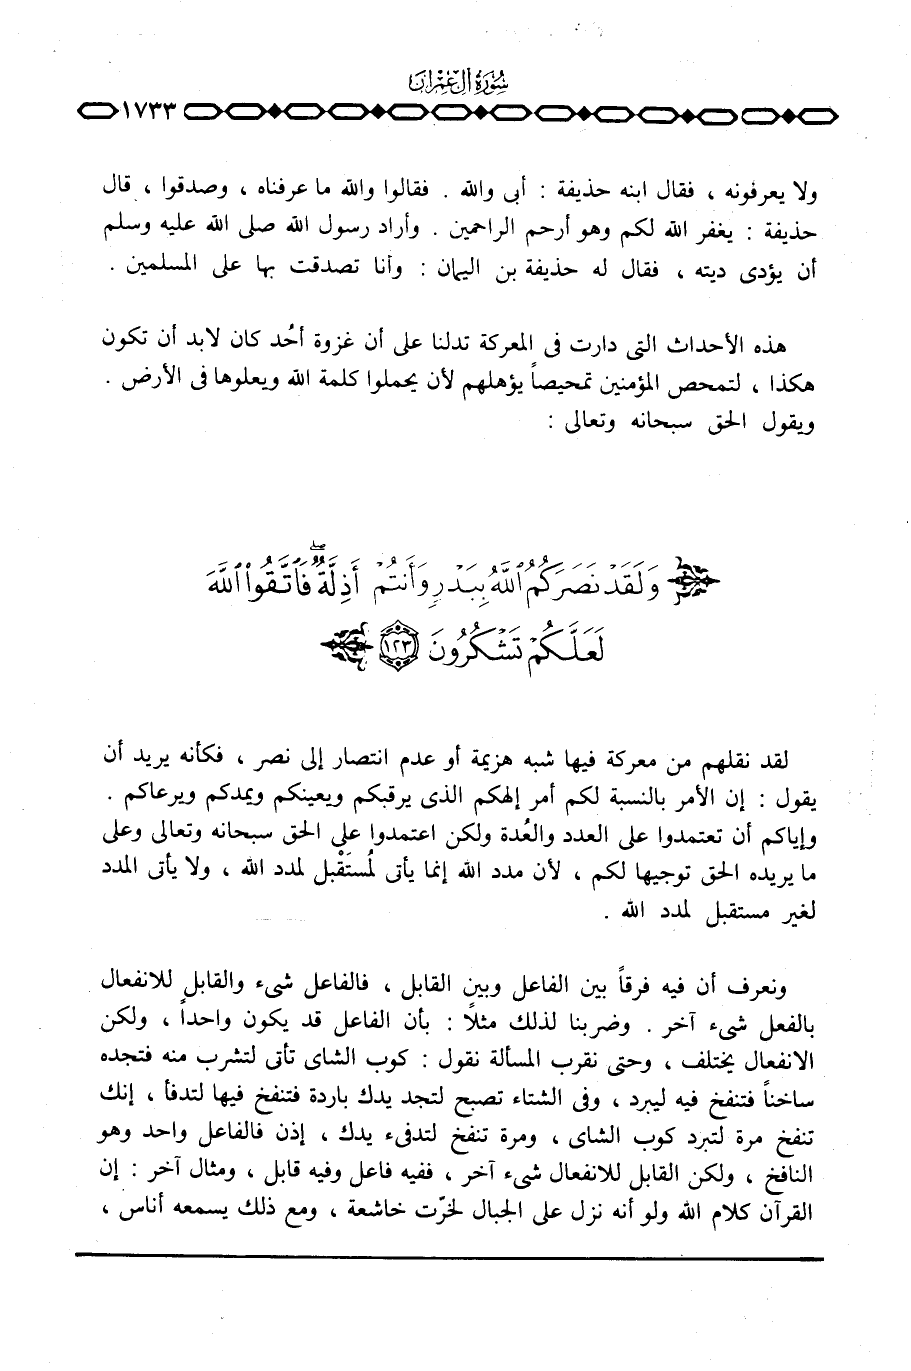 سُورَةُ آلِ عِمْرَان
١٧٣٣
ولا يعرفونه ، فقال ابنه حذيفة : أبى والله . فقالوا والله ما عرفناه ، وصدقوا ، قال
حذيفة : يغفر الله لكم وهو أرحم الراحمين . وأراد رسول الله صلى الله عليه وسلم
أن يؤدى ديته ، فقال له حذيفة بن اليمان : وأنا تصدقت بها على المسلمين .
هذه الأحداث التى دارت فى المعركة تدلنا على أن غزوة أُحد كان لابد أن تكون
هكذا ، لتمحص المؤمنين تمحيصاً يؤهلهم لأن يحملوا كلمة الله ويعلوها فى الأرض .
ويقول الحق سبحانه وتعالى :
وَلَقَدْ نَصَرَكُمُ ٱللَّهُ بِبَدْرٍ وَأَنتُمْ أَذِلَّةٌ ۖ فَٱتَّقُوا۟ ٱللَّهَ
لَعَلَّكُمْ تَشْكُرُونَ ١٢٣
لقد نقلهم من معركة فيها شبه هزيمة أو عدم انتصار إلى نصر ، فكأنه يريد أن
يقول : إن الأمر بالنسبة لكم أمر إلهكم الذى يرقبكم ويعينكم ويمدكم ويرعاكم .
وإياكم أن تعتمدوا على العدد والعُدة ولكن اعتمدوا على الحق سبحانه وتعالى وعلى
ما يريده الحق توجيها لكم ، لأن مدد الله إنما يأتى لمُستَقْبل لمدد الله ، ولا يأتى المدد
لغير مستقبل لمدد الله .
ونعرف أن فيه فرقاً بين الفاعل وبين القابل ، فالفاعل شىء والقابل للانفعال
بالفعل شىء آخر . وضربنا لذلك مثلاً : بأن الفاعل قد يكون واحداً ، ولكن
الانفعال يختلف ، وحتى نقرب المسألة نقول : كوب الشاى تأتى لتشرب منه فتجده
ساخناً فتنفخ فيه ليبرد ، وفى الشتاء تصبح لتجد يدك باردة فتنفخ فيها لتدفأ ، إنك
تنفخ مرة لتبرد كوب الشاى ، ومرة تنفخ لتدفىء يدك ، إذن فالفاعل واحد وهو
النافخ ، ولكن القابل للانفعال شىء آخر ، ففيه فاعل وفيه قابل ، ومثال آخر : إن
القرآن كلام الله ولو أنه نزل على الجبال لخرّت خاشعة ، ومع ذلك يسمعه أناس ،